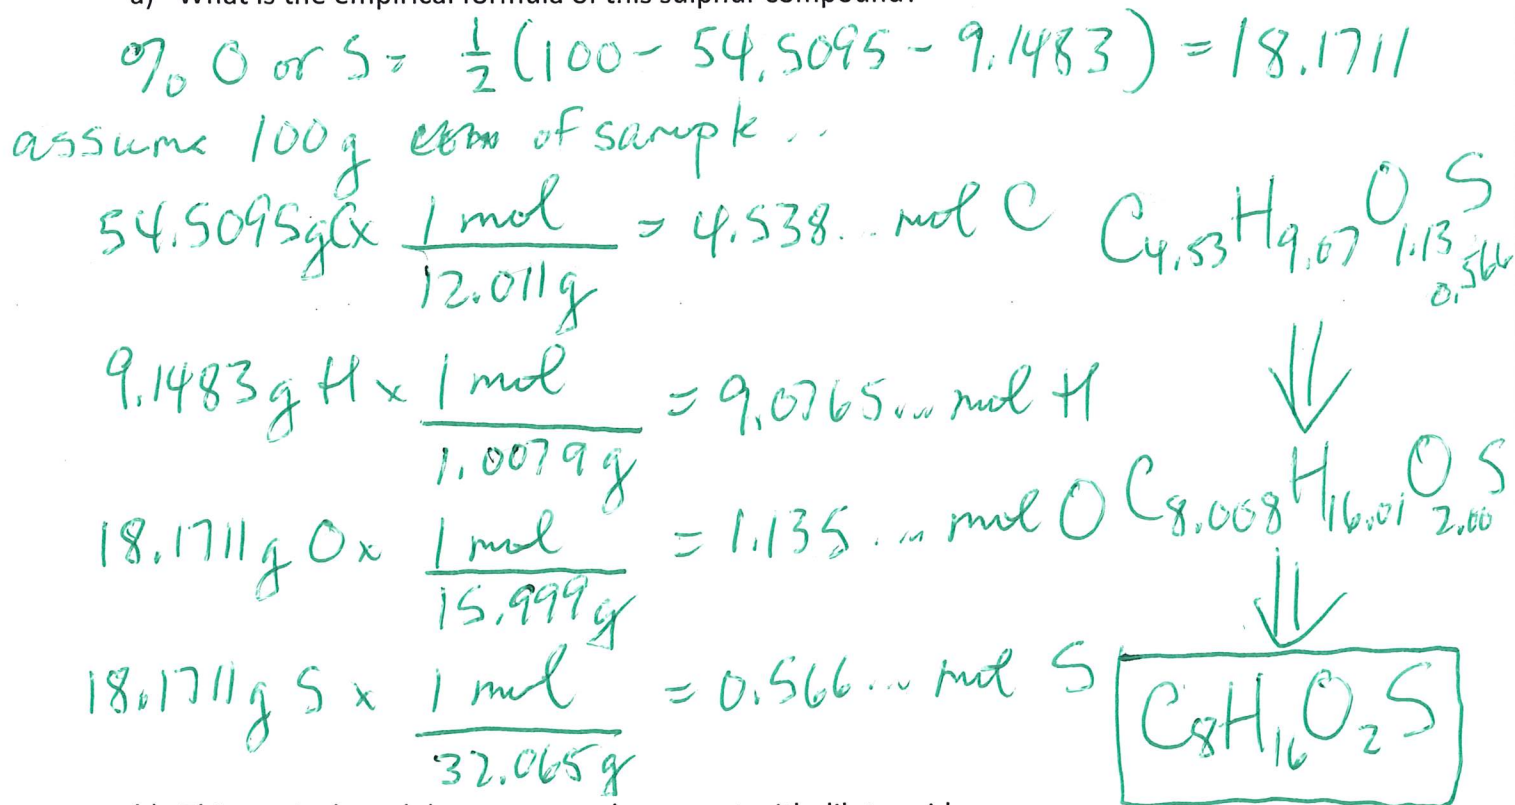 a) What is the empirical formula of this sulphur compound?
% O or S = 1/2 (100 - 54.5095 - 9.1483) = 18.1711
assume 100g of sample ..
54.5095g C x 1 mol / 12.011g = 4.538... mol C
C4.53 H9.07 O1.13 S0.566
⇓
9.1483g H x 1 mol / 1.0079g = 9.0765... mol H
18.1711g O x 1 mol / 15.999g = 1.135... mol O
C8.008 H16.01 O2.00 S
⇓
18.1711g S x 1 mol / 32.065g = 0.566... mol S
C8H16O2S